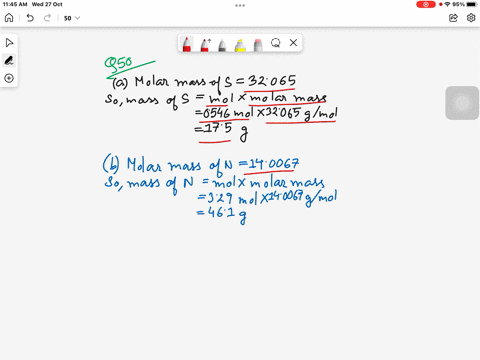 11:45 AM Wed 27 Oct
95%
50
Q50
(a) Molar mass of S = 32.065
So, mass of S = mol × molar mass
= 0546 mol × 32.065 g/mol
= 17.5 g
(b) Molar mass of N = 14.0067
So, mass of N = mol × molar mass
= 3.29 mol × 14.0067 g/mol
= 46.1 g